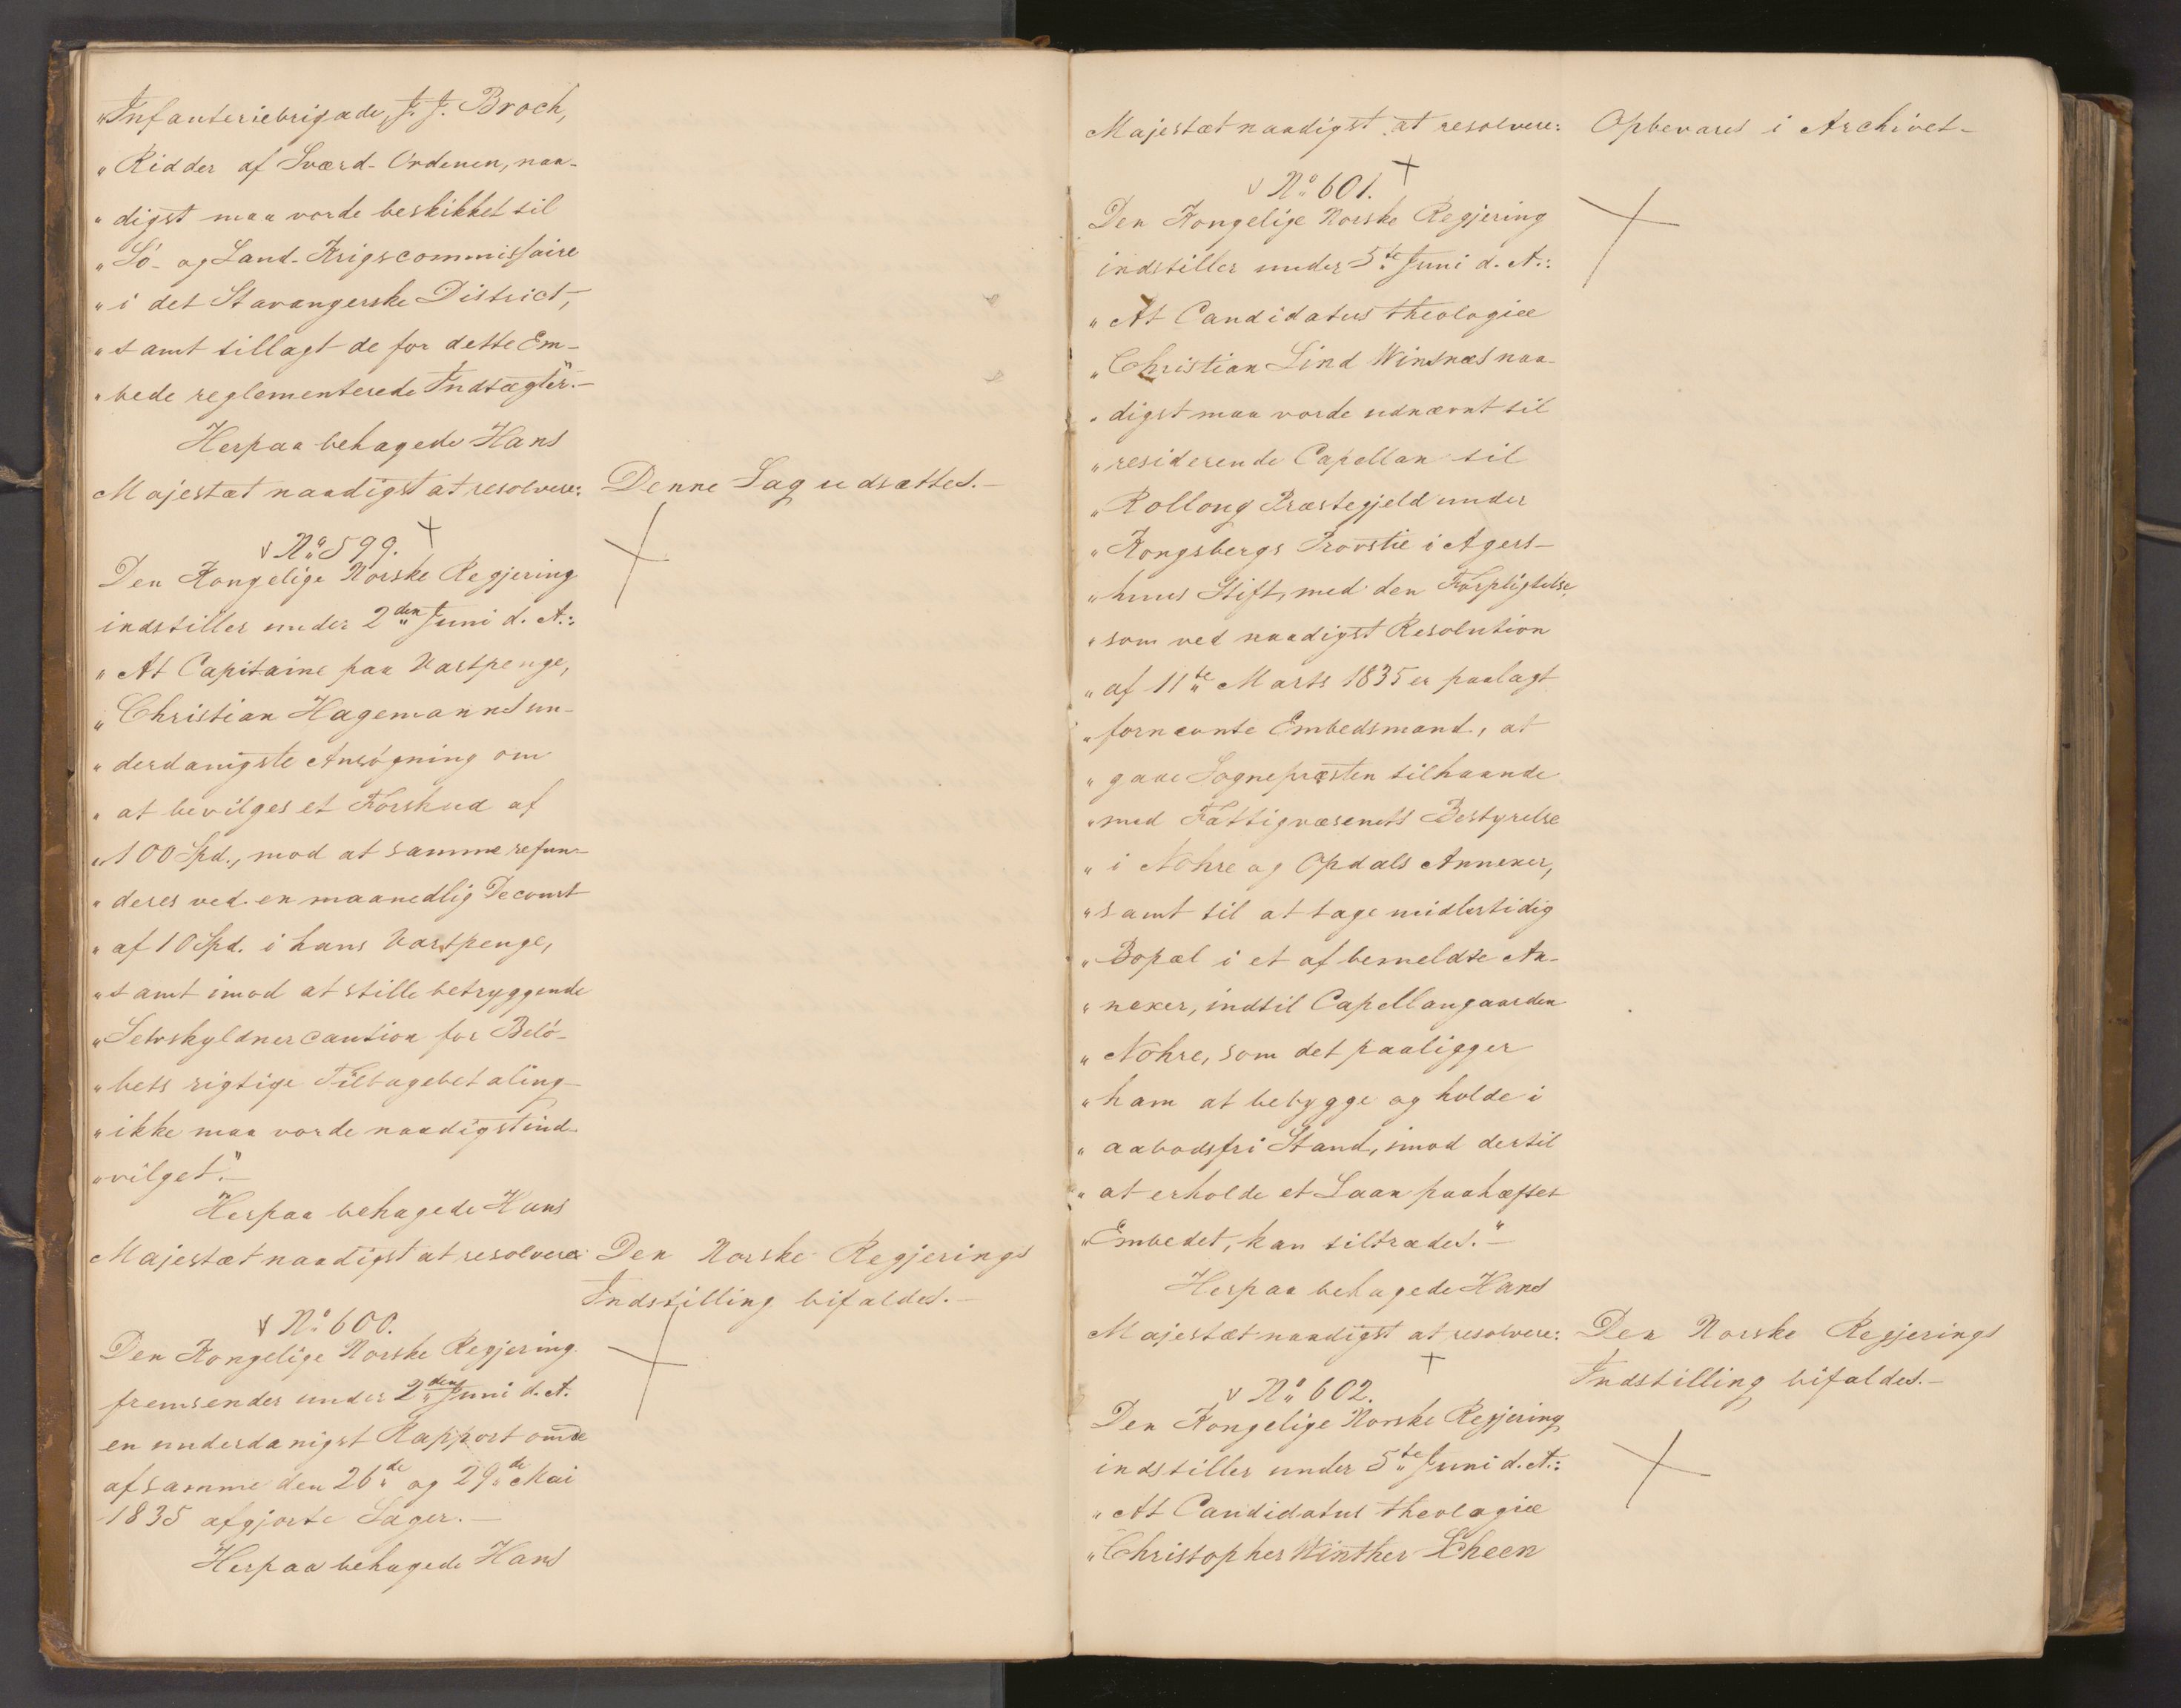 „Infanteriebrigade, J. J. Broch,
„Ridder af Sværd-Ordenen, naa-
„digst maa vorde beskikket til
„Sö- og Land-Krigscommissaire
„i det Stavangerske District,
„samt tillagt de for dette Em-
„bede reglementerede Indtægter".-
Herpaa behagede Hans
Majestæt naadigst at resolvere: Denne Sag udsættes.-
No 599.
Den Kongelige Norske Regjering
indstiller under 2den Juni d. A.:
„At Capitaine paa Vartpenge,
„Christian Hagemanns un-
„derdanigste Ansögning om
„at bevilges et Forskud af
„100 Spd., mod at samme refun-
„deres ved en maanedlig Decourt
„af 10 Spd. i hans Vartpenge,
„samt imod at stille betryggende
„Selvskyldnercaution for Belö-
„bets rigtige Tilbagebetaling
„ikke maa vorde naadigst ind-
„vilget".-
Herpaa behagede Hans
Majestæt naadigst at resolvere: Den Norske Regjerings
Indstilling bifaldes.-
No 600.
Den Kongelige Norske Regjering
fremsender under 2den Juni d. A.
en underdanigst Rapport om de
af samme den 26de og 29de Mai
1835 afgjorte Sager.-
Herpaa behagede Hans
Majestæt naadigst at resolvere: Opbevares i Archivet-
No 601.
Den Kongelige Norske Regjering
indstiller under 5te Juni d. A.:
„At Candidatus theologiæ
„Christian Lind Winsnæs naa-
„digst maa vorde udnævnt til
„residerende Capellan til
„Rolloug Præstegjeld under
„Kongsbergs Provstie i Agers-
„huus Stift, med den Forpligtelse,
„som ved naadigst Resolution
„af 11te Marts 1835 er paalagt
„fornævnte Embedsmand, at
„gaae Sognepræsten tilhaande
„med Fattigvæsenets Bestyrelse
„i Nohre og Opdals Annexer,
„samt til at tage midlertidig
„Bopæl i et af bemeldte An-
„nexer, indtil Capellangaarden
„Nohre, som det paaligger
„ham at bebygge og holde i
„aabodsfri Stand, imod dertil
„at erholde et Laan paahæftet
„Embedet, kan tiltrædes."-
Herpaa behagede Hans
Majestæt naadigst at resolvere: Den Norske Regjerings
Indstilling bifaldes.-
No 602.
Den Kongelige Norske Regjering
indstiller under 5te Juni d. A.:
„At Candidatus theologiæ
„Christopher Winther Scheen